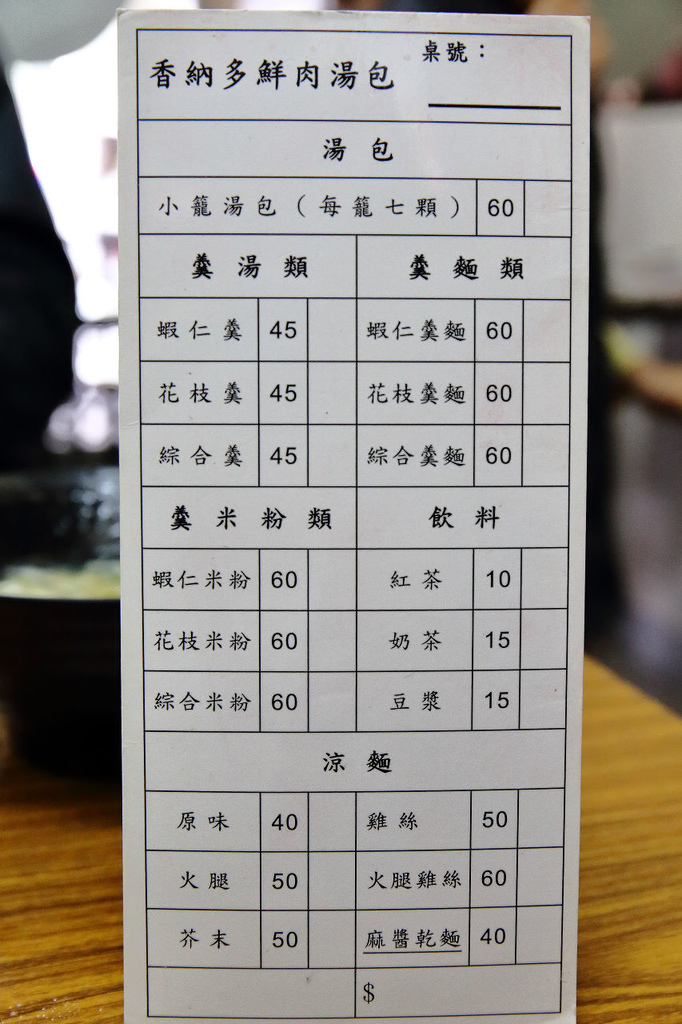 桌號：
香納多鮮肉湯包
湯包
小籠湯包（每籠七顆） 60
羹湯類 羹麵類
蝦仁羹 45 蝦仁羹麵 60
花枝羹 45 花枝羹麵 60
綜合羹 45 綜合羹麵 60
羹米粉類 飲料
蝦仁米粉 60 紅茶 10
花枝米粉 60 奶茶 15
綜合米粉 60 豆漿 15
涼麵
原味 40 雞絲 50
火腿 50 火腿雞絲 60
芥末 50 麻醬乾麵 40
$